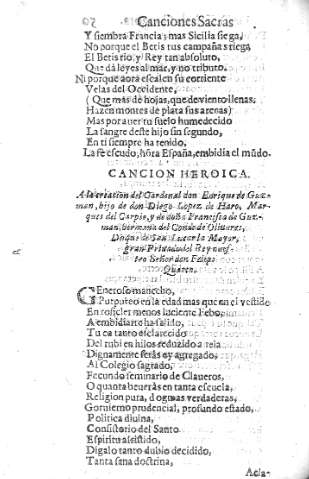 Canciones Sacras
Y siembra Francia; mas Sicilia siega,
No porque el Betis tus campañas riega
El Betis rio, y Rey tan absoluto,
Que dá leyes al mar, y no tributo.
Ni porque aora escalen su corriente
Velas del Occidente,
( Que mas de hojas, que de viento llenas,
Hazen montes de plata sus arenas)
Mas por auer tu suelo humedecido
La sangre deste hijo sin segundo,
En ti siempre ha tenido,
La fè escudo, hõra España, embidia el mũdo.
CANCION HEROICA.
A la creacion del Cardenal don Enrique de Guz-
man, hijo de don Diego Lopez de Haro, Mar-
ques del Carpio, y de doña Francisca de Guz-
man, hermana del Conde de Oliuares,
Duque de San Lucar la Mayor,
gran Priuado del Rey nues-
tro Señor don Felipe
Quarto.
Generoso mancebo,
Purpureo en la edad mas que en el vestido
En rosicler menos luciente Febo,
A embidiarte ha salido,
Tu en tanto esclarecido
Del rubi en hilos reduzido a tela
Dignamente seràs oy agregado,
Al Colegio sagrado,
Fecundo seminario de Claueros,
O quanta beuerás en tanta escuela,
Religion pura, dogmas verdaderos,
Gouierno prudencial, profundo estado,
Politica diuina,
Consistorio del Santo
Espiritu assistido,
Digalo tanto dubio decidido,
Tanta sana doctrina,
Acla-